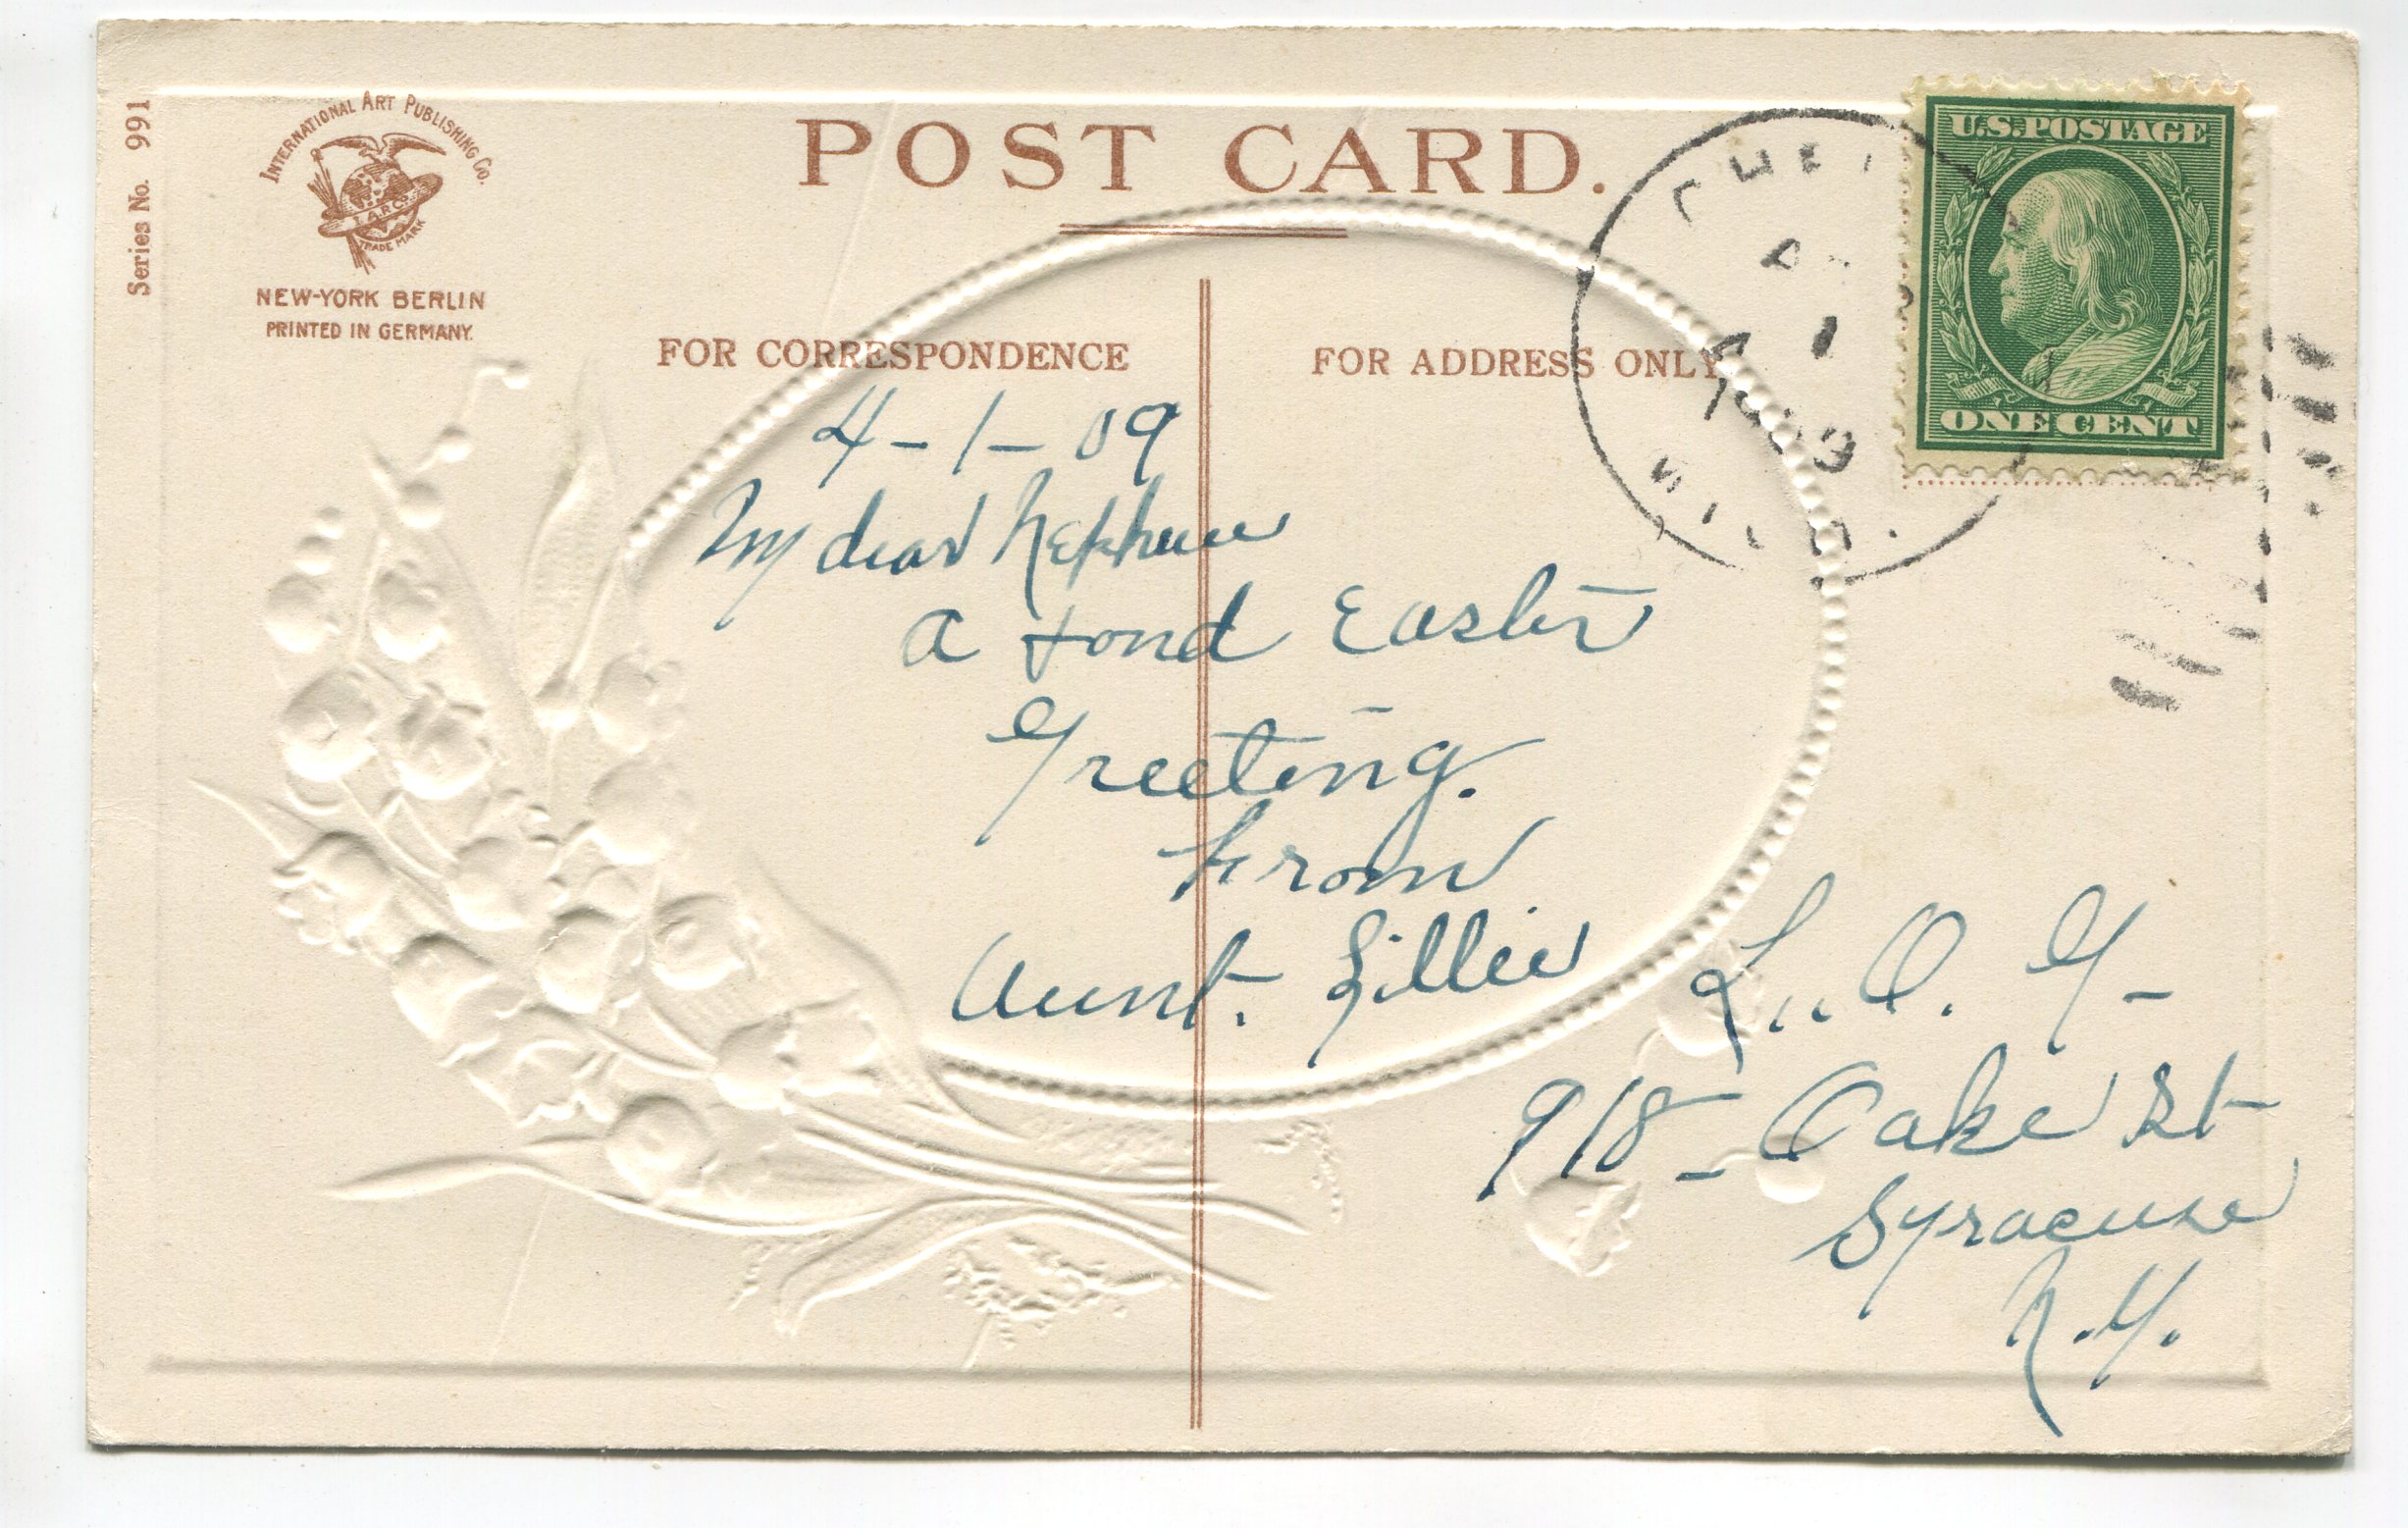 Series No. 991
INTERNATIONAL ART PUBLISHING CO.
I.A.P.CO.
TRADE MARK
NEW-YORK BERLIN
PRINTED IN GERMANY.
POST CARD.
FOR CORRESPONDENCE
FOR ADDRESS ONLY
U.S. POSTAGE
ONE CENT
1
4-1-09
My dear Nephew
a fond Easter
Greeting.
from
Aunt. Lillie
L.. O. G-
918- Oake St
Syracuse
N.Y.